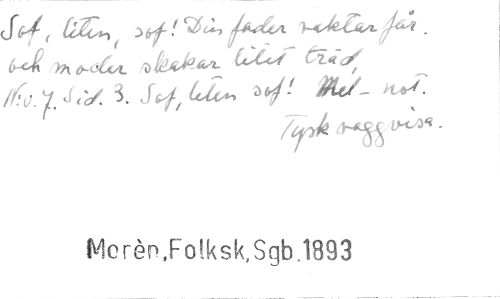 Sof, liten, sof! Din fader vaktar får.
och moder skakar litet träd,
N:o. 7. Sid. 3. Sof, liten sof! Mel-not.
Tysk vaggvisa.
Morèn,Folksk,Sgb.1893